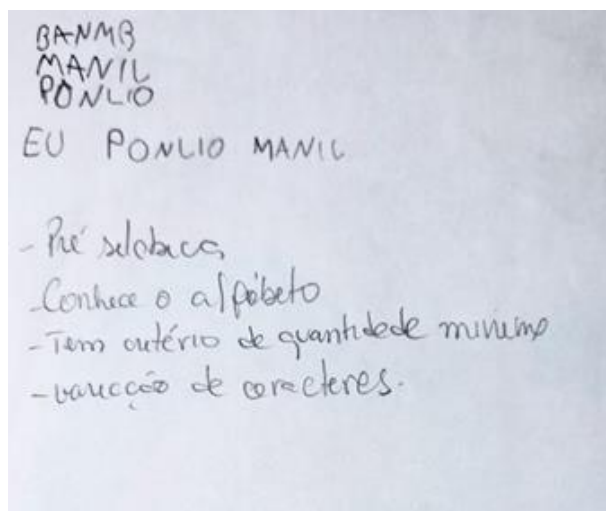 BANMB
MANIL
PONLIO
EU PONLIO MANIL
- Pré silábica
- Conhece o alfabeto
- Tem critério de quantidade mínima
- variação de caracteres.